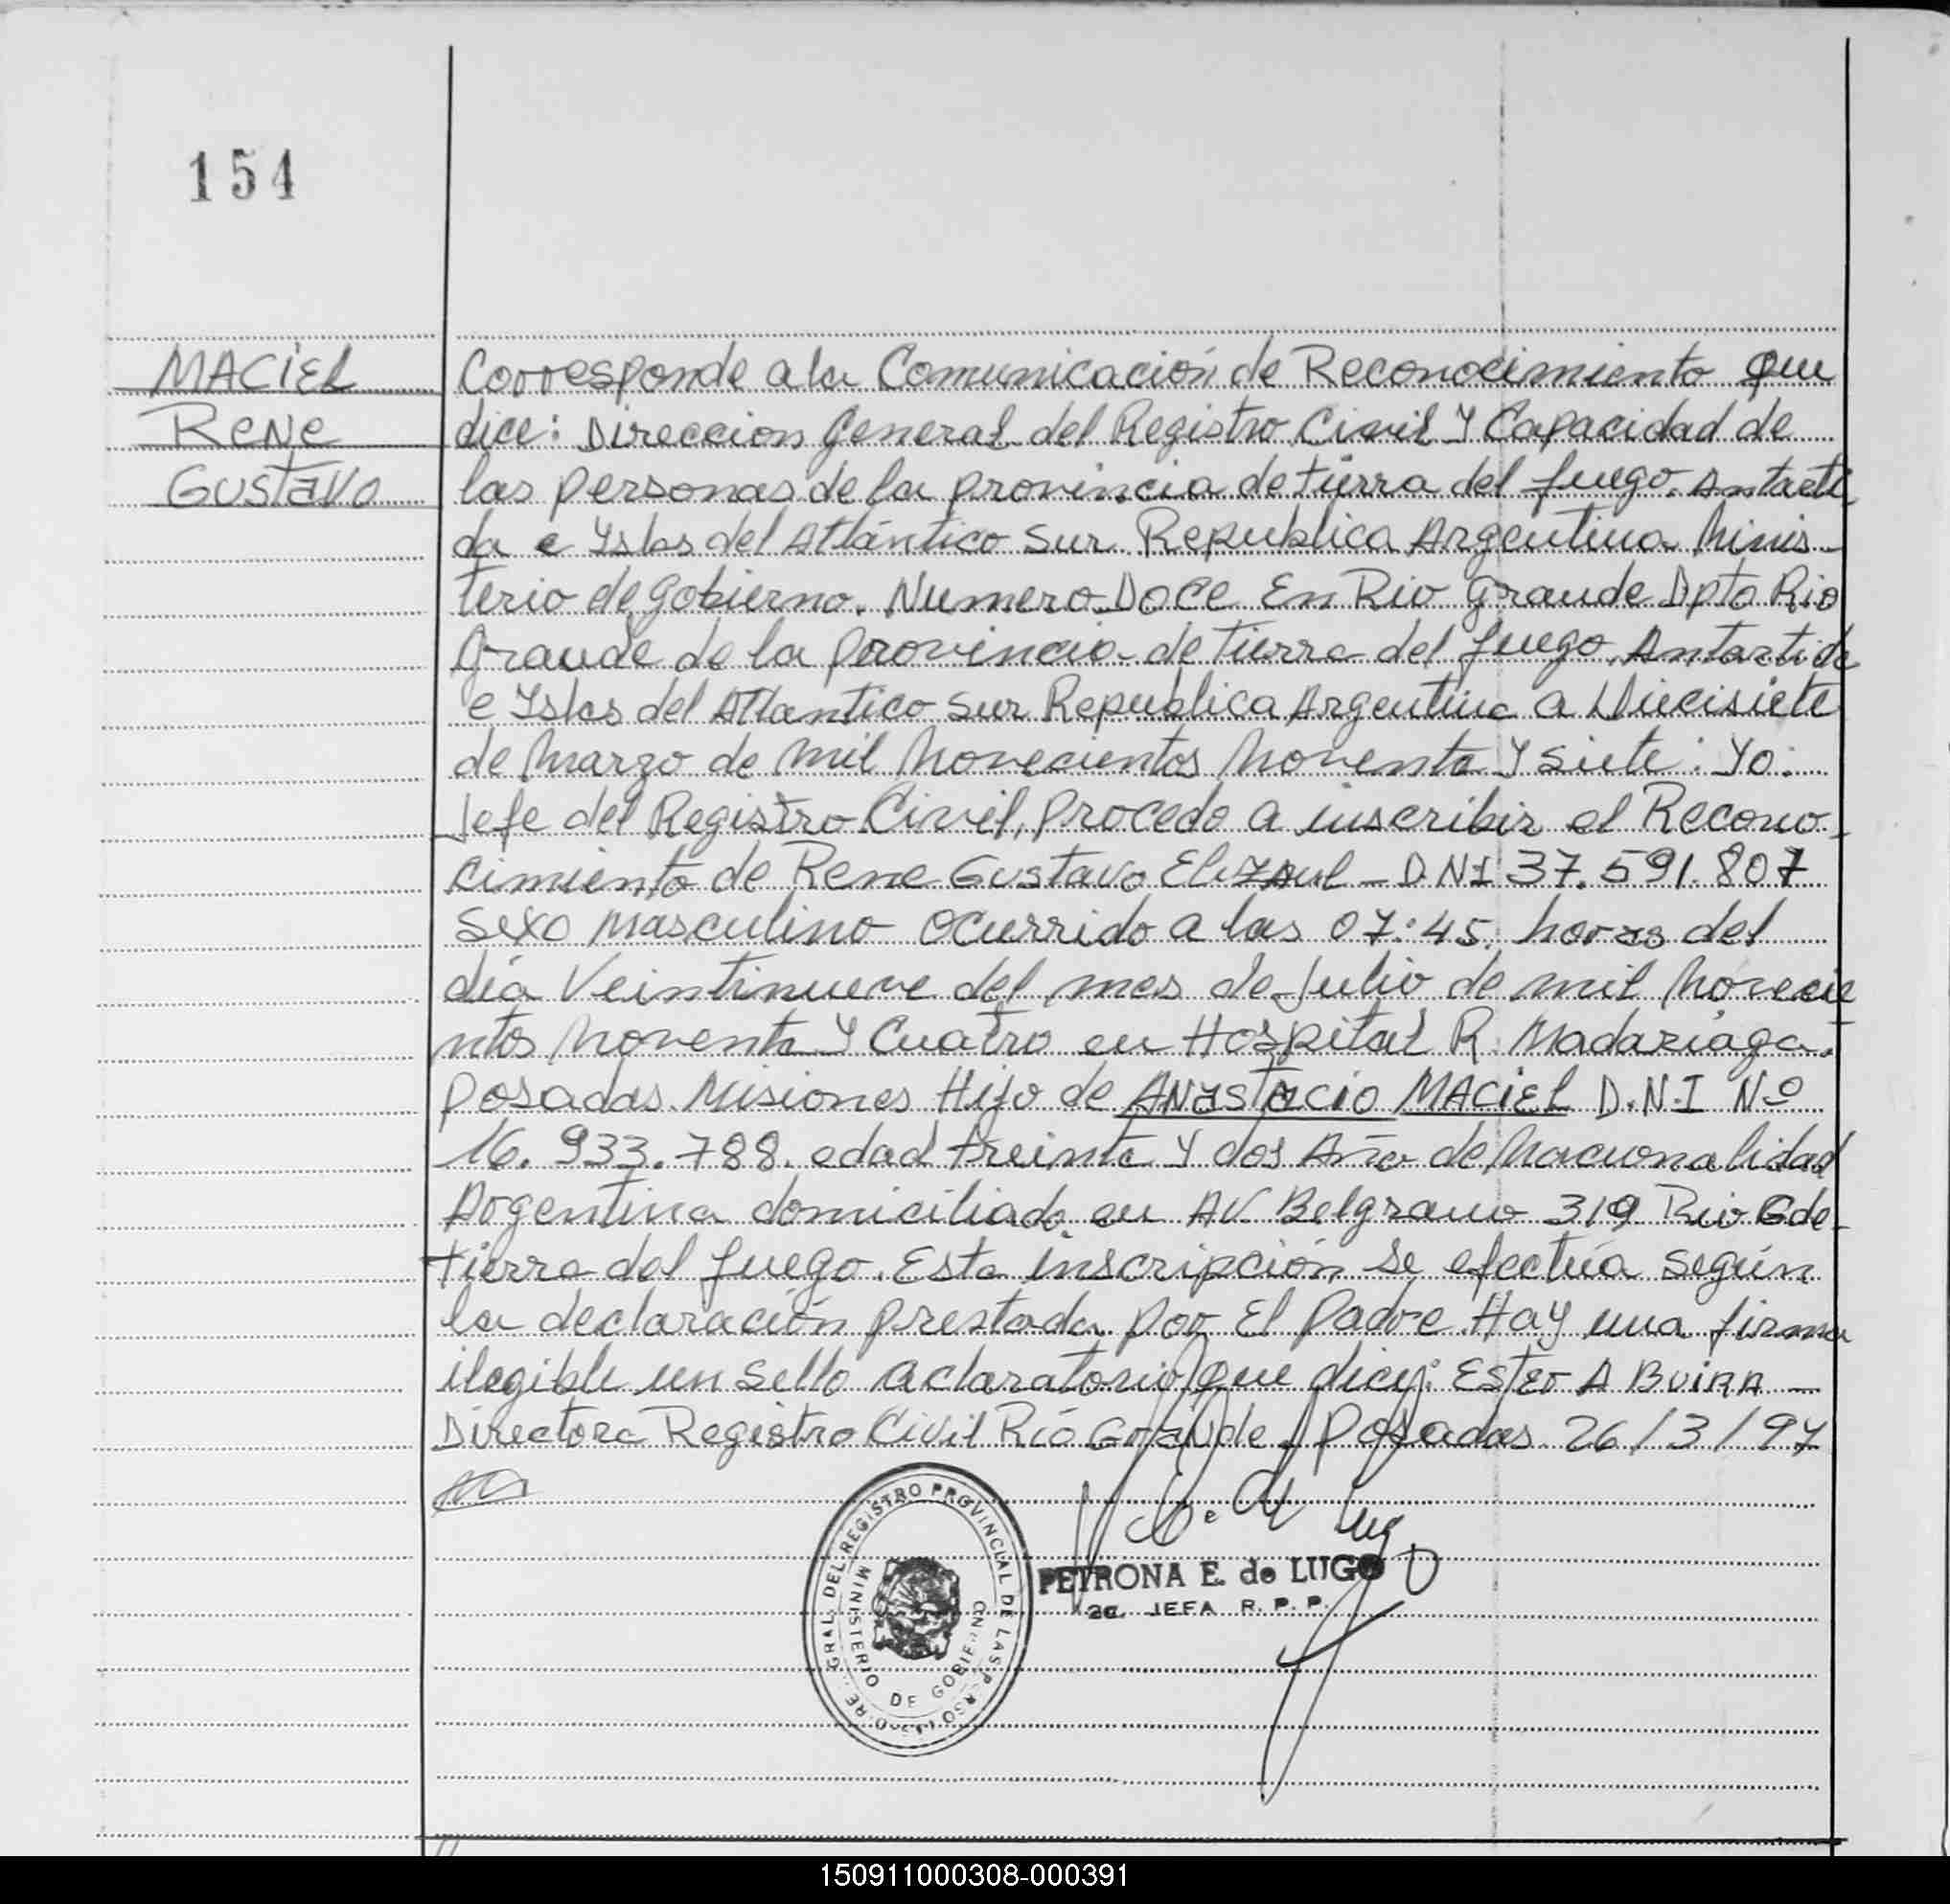 154
MACIEL
RENE
GUSTAVO
Corresponde a la Comunicación de Reconocimiento que
dice: Direccion General del Registro Civil Y Capacidad de
las personas de la provincia de tierra del fuego. Antarti
da e Yslas del Atlántico Sur Republica Argentina Minis-
terio de Gobierno. Numero Doce En Rio Grande Dpto Rio
Grande de la provincia de Tierra del fuego Antartida
e Yslas del Atlantico Sur Republica Argentina a Diecisiete
de Marzo de mil Novecientos Noventa Y Siete: Yo:
Jefe del Registro Civil, procedo a inscribir el Recono-
cimiento de Rene Gustavo - DNI 37.591.807
Sexo Masculino Ocurrido a las 07:45 horas del
día Veintinueve del mes de Julio de mil Novecie
ntos Noventa Y Cuatro en Hospital R. Madariaga.
Posadas Misiones Hijo de ANASTACIO MACIEL D.N.I Nº
16.933.788. edad treinta Y dos Año de Nacionalidad
Argentina domiciliado en AV. Belgrano 319 Rio Gde-
tierra del fuego. Esta inscripción se efectúa según
la declaración prestada por El Padre Hay una firma
ilegible un Sello aclaratorio que dice: Ester A BUIRA -
Directora Registro Civil Río Grande. Posadas 26/3/97
GRAL. DEL REGISTRO PROVINCIAL DE LAS PERSONAS
MINISTERIO DE GOBIERNO
PETRONA E. de LUGO
2a. JEFA R.P.P.
150911000308-000391